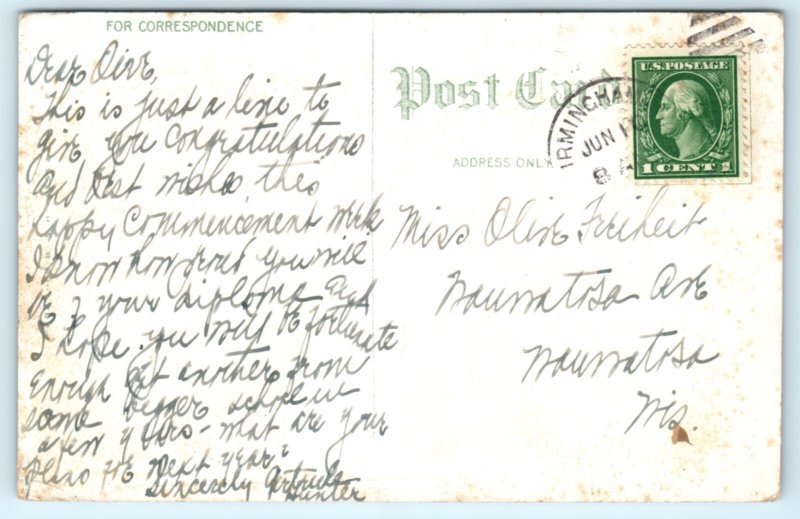 FOR CORRESPONDENCE
Dear Olive,
This is just a line to
give you Congratulations
and best wishes this
happy Commencement Week
I know how proud you will
be of your diploma and
I hope you will be fortunate
enough get another from
some bigger school in
a few years - what are your
plans for next year?
Sincerely Gertrude
Hunter
Post Card
ADDRESS ONLY
U.S. POSTAGE
1 CENT 1
IRMINGHA
JUN 10
8 A
Miss Olive Freiheit
Wauwatosa Ave
Wauwatosa
Wis.